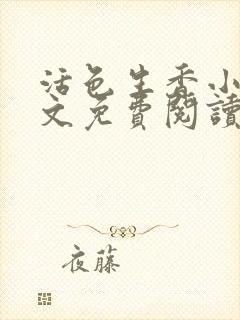 活色生香小
文免費閱讀
夜藤